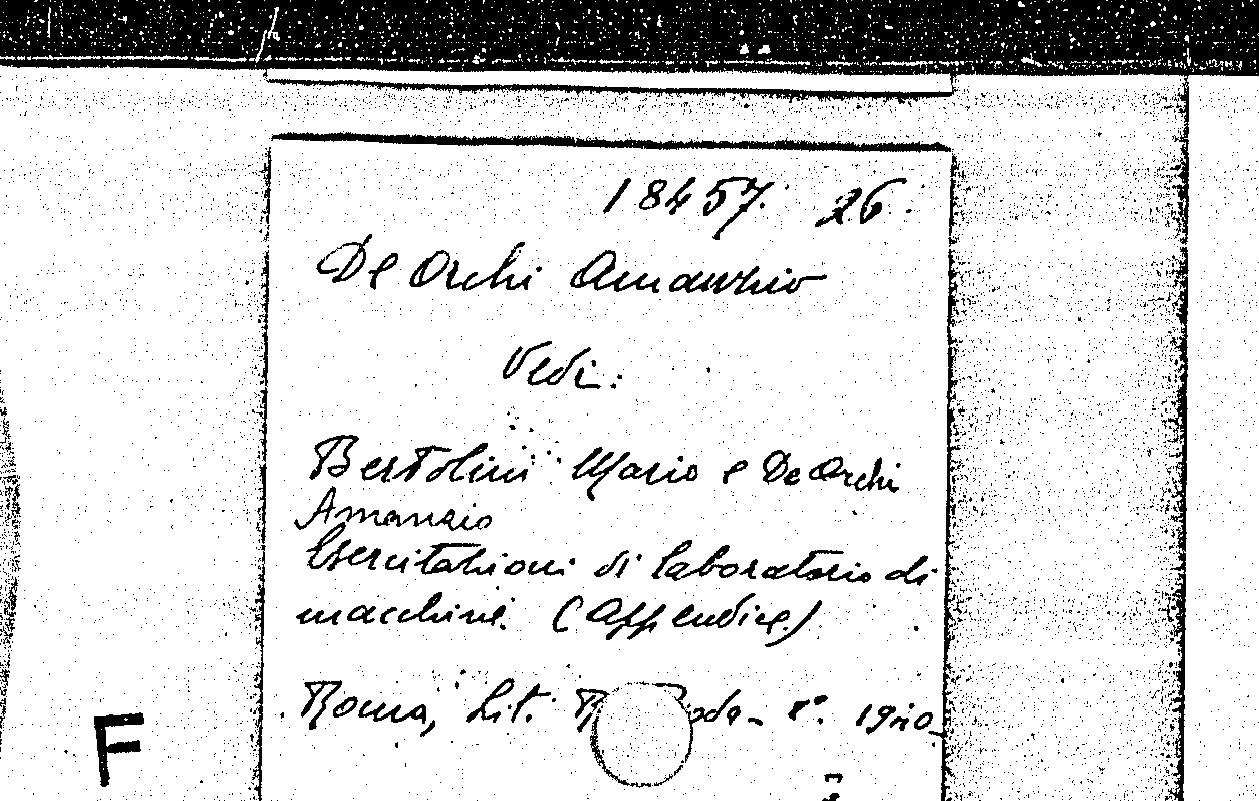 18457. 26.
De Orchi Amanzio
Vedi:
Bertolini Mario e De Orchi
Amanzio
Esercitazioni di laboratorio di
macchine. (Appendice)
Roma, Lit. 8°.
F